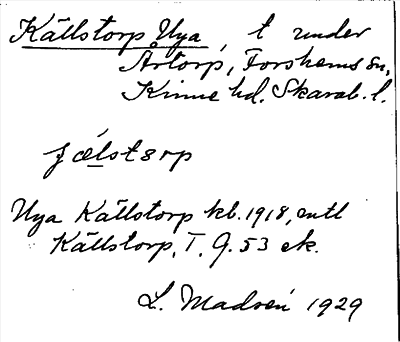 Källstorp Nya, t under
Årtorp, Forshems sn,
Kinne hd. Skarab. l.
fǽlstərp
Nya Källstorp kb. 1918, entl
Källstorp, T. G. 53 ek.
L. Madsén 1929